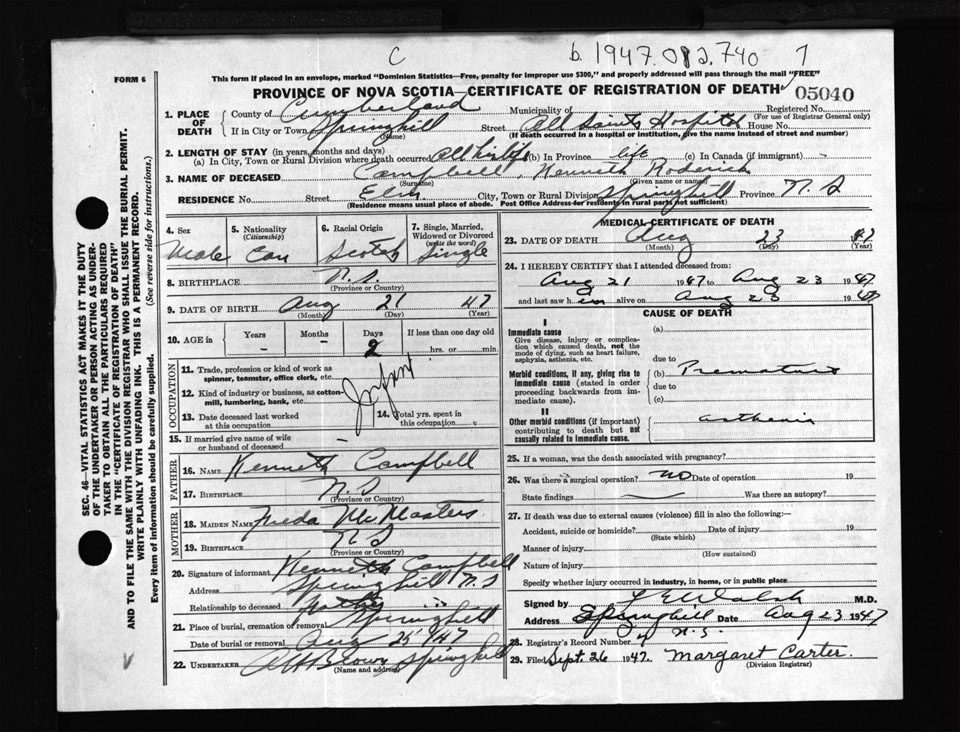 C b. 1947.012.740 7
FORM 6
This form if placed in an envelope, marked "Dominion Statistics—Free, penalty for improper use $300," and properly addressed will pass through the mail "FREE"
PROVINCE OF NOVA SCOTIA—CERTIFICATE OF REGISTRATION OF DEATH 05040
1. PLACE OF DEATH County of Cumberland Municipality of Registered No.
(For use of Registrar General only)
If in City or Town Springhill (Name) Street All Saints Hospital House No.
(If death occurred in a hospital or institution, give the name instead of street and number)
2. LENGTH OF STAY (in years, months and days)
(a) In City, Town or Rural Division where death occurred All his life (b) In Province life (c) In Canada (if immigrant) -
3. NAME OF DECEASED Campbell, Kenneth Roderick
(Surname) (Given name or names)
RESIDENCE No. Street Elm City, Town or Rural Division Springhill Province N.S
(Residence means usual place of abode. Post Office Address for residents in rural parts not sufficient)
4. Sex Male
5. Nationality (Citizenship) Can
6. Racial Origin Scotch
7. Single, Married, Widowed or Divorced (write the word) Single
8. BIRTHPLACE N.S.
(Province or Country)
9. DATE OF BIRTH Aug 21 47
(Month) (Day) (Year)
10. AGE in Years - Months - Days 2 If less than one day old
hrs. or min.
OCCUPATION
11. Trade, profession or kind of work as spinner, teamster, office clerk, etc.
12. Kind of industry or business, as cotton-mill, lumbering, bank, etc.
Infant
13. Date deceased last worked at this occupation
14. Total yrs. spent in this occupation
15. If married give name of wife or husband of deceased -
FATHER
16. NAME Kenneth Campbell
17. BIRTHPLACE N.S
(Province or Country)
MOTHER
18. MAIDEN NAME Freda McMasters
19. BIRTHPLACE N S
(Province or Country)
20. Signature of informant Kenneth Campbell
Address Springhill N.S
Relationship to deceased Father
21. Place of burial, cremation or removal Springhill
Date of burial or removal Aug 25/47
22. UNDERTAKER Brown Springhill
(Name and address)
MEDICAL CERTIFICATE OF DEATH
23. DATE OF DEATH Aug 23 47
(Month) (Day) (Year)
24. I HEREBY CERTIFY that I attended deceased from:
Aug 21 1947 to Aug 23 1947
and last saw h im alive on Aug 23 1947
CAUSE OF DEATH
I
Immediate cause
Give disease, injury or complication which caused death, not the mode of dying, such as heart failure, asphyxia, asthenia, etc.
(a)
due to
Morbid conditions, if any, giving rise to immediate cause (stated in order proceeding backwards from immediate cause).
(b) Premature
due to
(c)
II
Other morbid conditions (if important) contributing to death but not causally related to immediate cause.
asthenia
25. If a woman, was the death associated with pregnancy?
26. Was there a surgical operation? no Date of operation 19
State findings Was there an autopsy?
27. If death was due to external causes (violence) fill in also the following:—
Accident, suicide or homicide? Date of injury 19
(State which)
Manner of injury
(How sustained)
Nature of injury
Specify whether injury occurred in industry, in home, or in public place
Signed by Walsh M.D.
Address Springhill N.S. Date Aug 23 1947
28. Registrar's Record Number
29. Filed Sept. 26 1947. Margaret Carter.
(Division Registrar)
SEC. 46—VITAL STATISTICS ACT MAKES IT THE DUTY
OF THE UNDERTAKER OR PERSON ACTING AS UNDER-
TAKER TO OBTAIN ALL THE PARTICULARS REQUIRED
IN THE "CERTIFICATE OF REGISTRATION OF DEATH"
AND TO FILE THE SAME WITH THE DIVISION REGISTRAR WHO SHALL ISSUE THE BURIAL PERMIT.
WRITE PLAINLY WITH UNFADING INK. THIS IS A PERMANENT RECORD.
Every item of information should be carefully supplied. (See reverse side for instructions.)